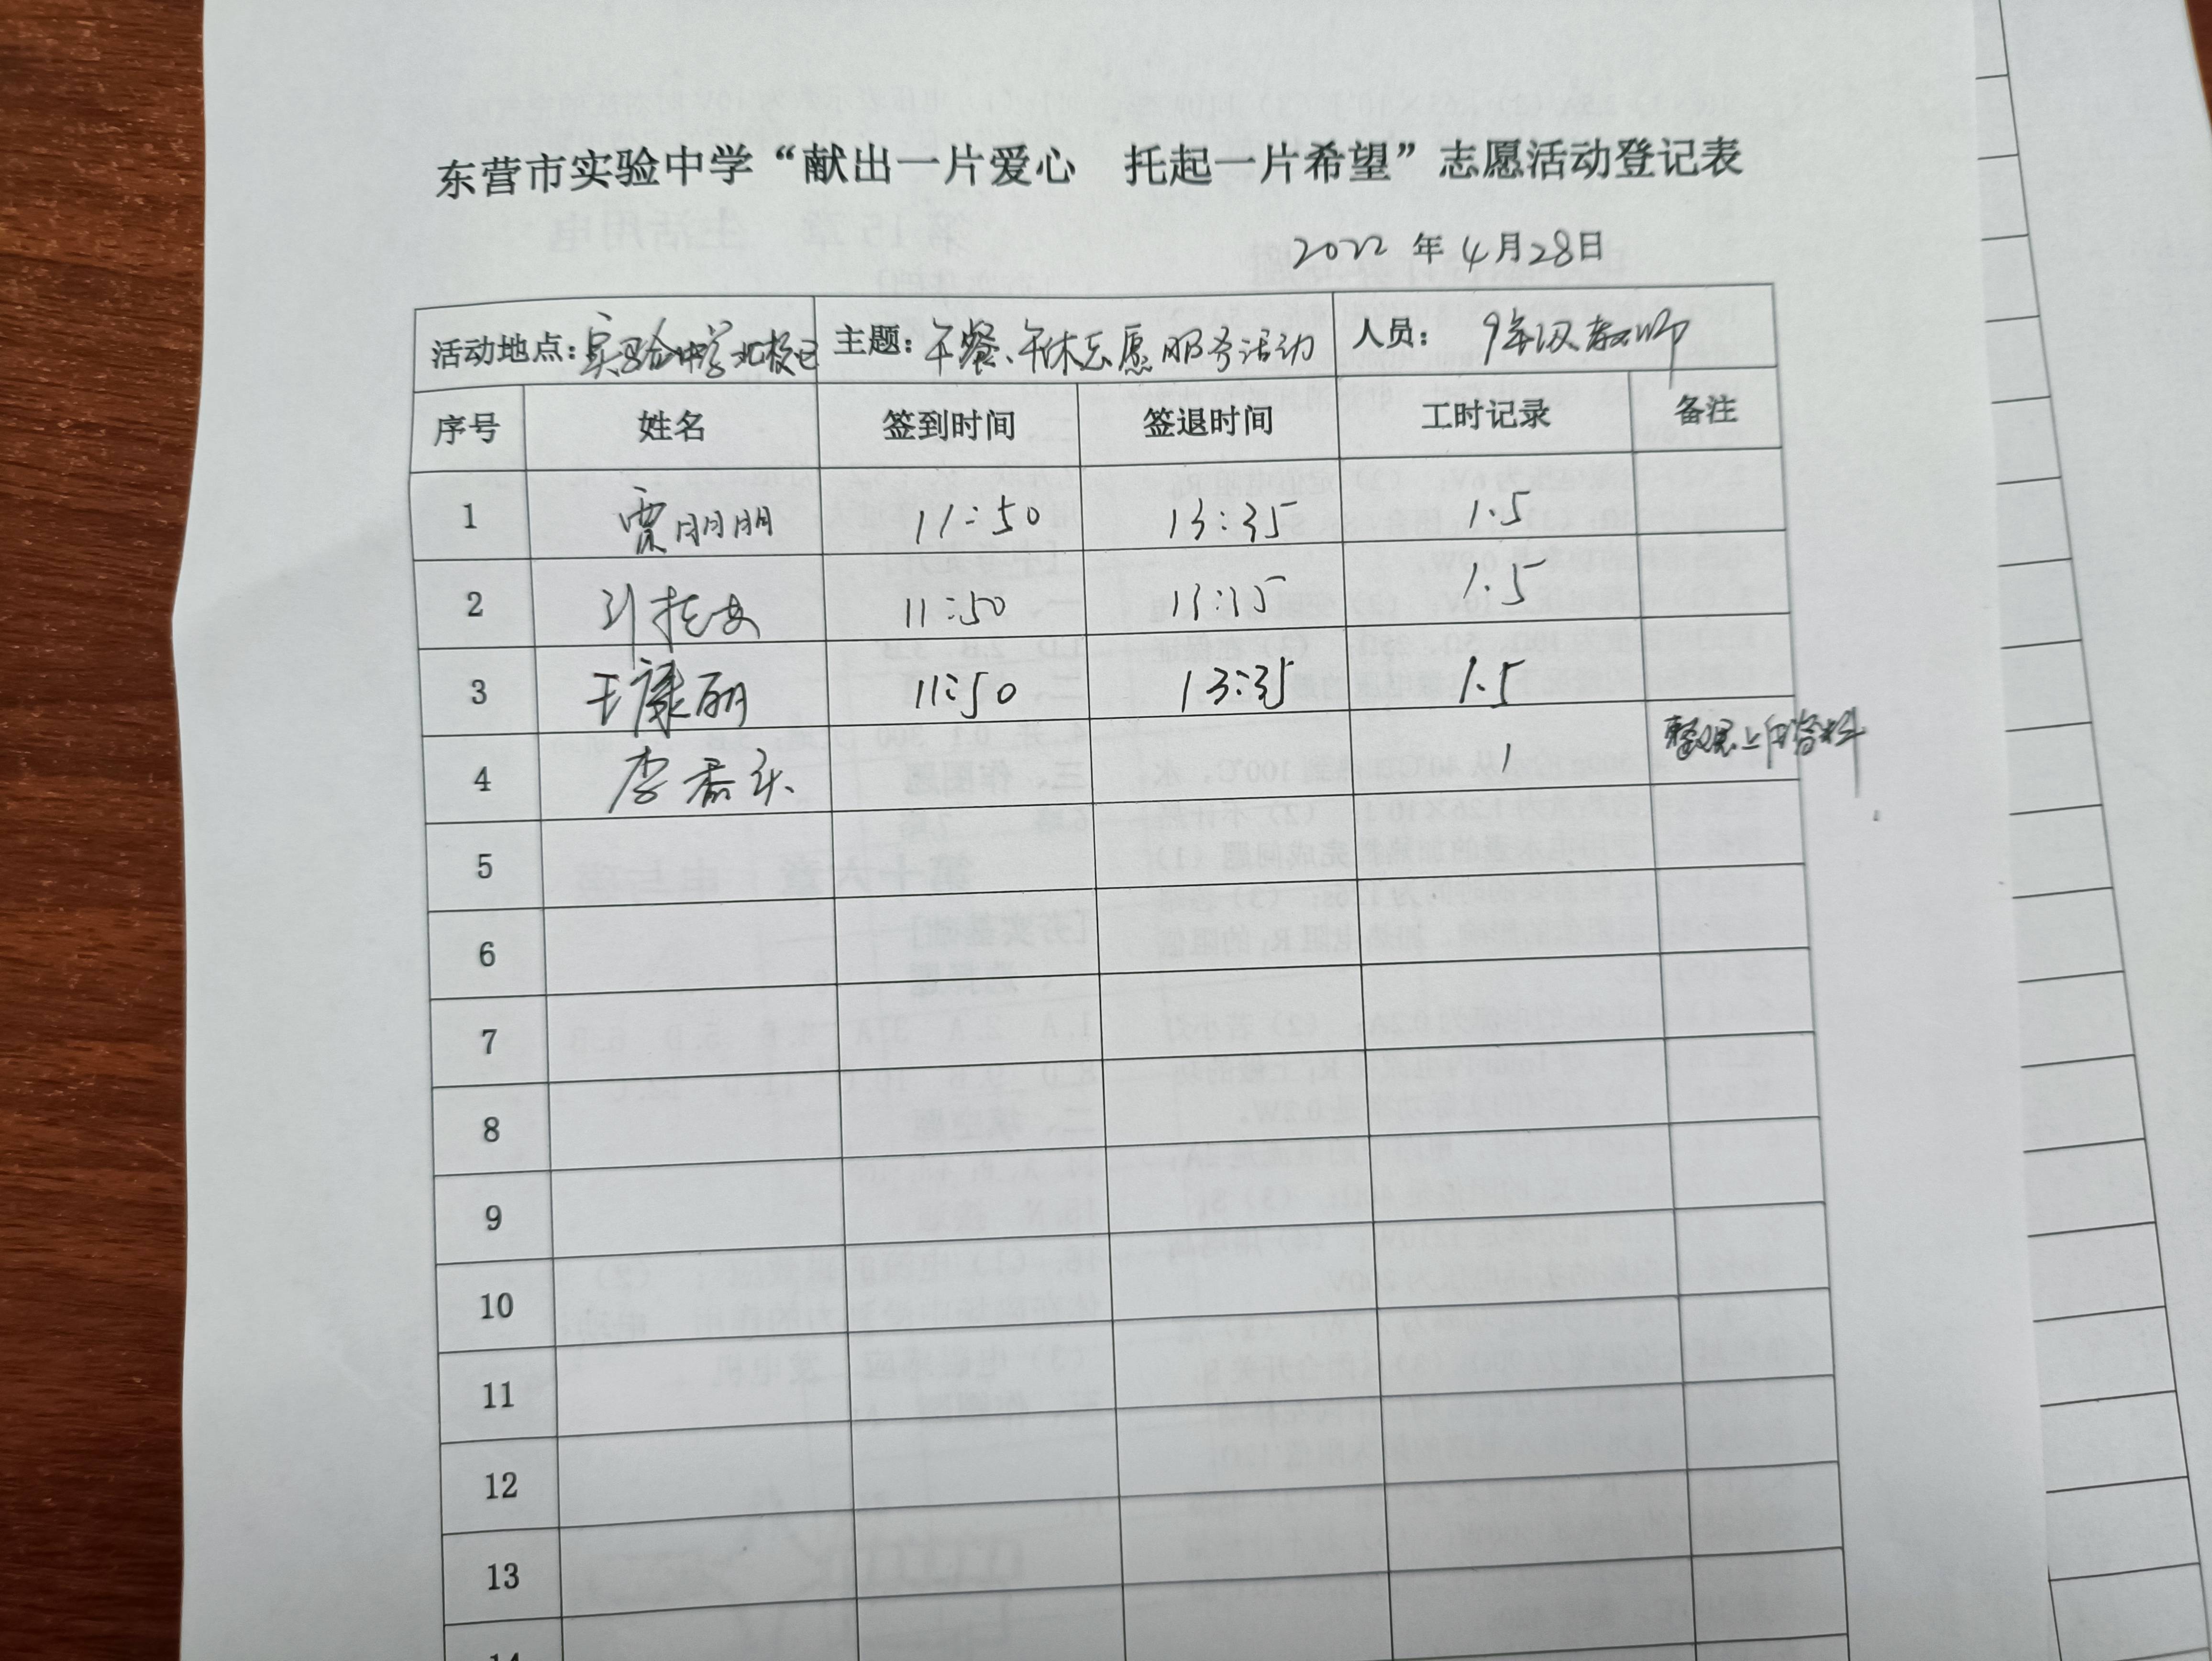 东营市实验中学“献出一片爱心 托起一片希望”志愿活动登记表
2022 年 4 月 28 日
活动地点：实验中学北校区 主题：午餐、午休志愿服务活动 人员： 9年级教师
序号 姓名 签到时间 签退时间 工时记录 备注
1 贾明明 11:50 13:35 1.5
2 11:50 13:35 1.5
3 王康丽 11:50 13:35 1.5
4 李 1 整理上传资料
5
6
7
8
9
10
11
12
13
14